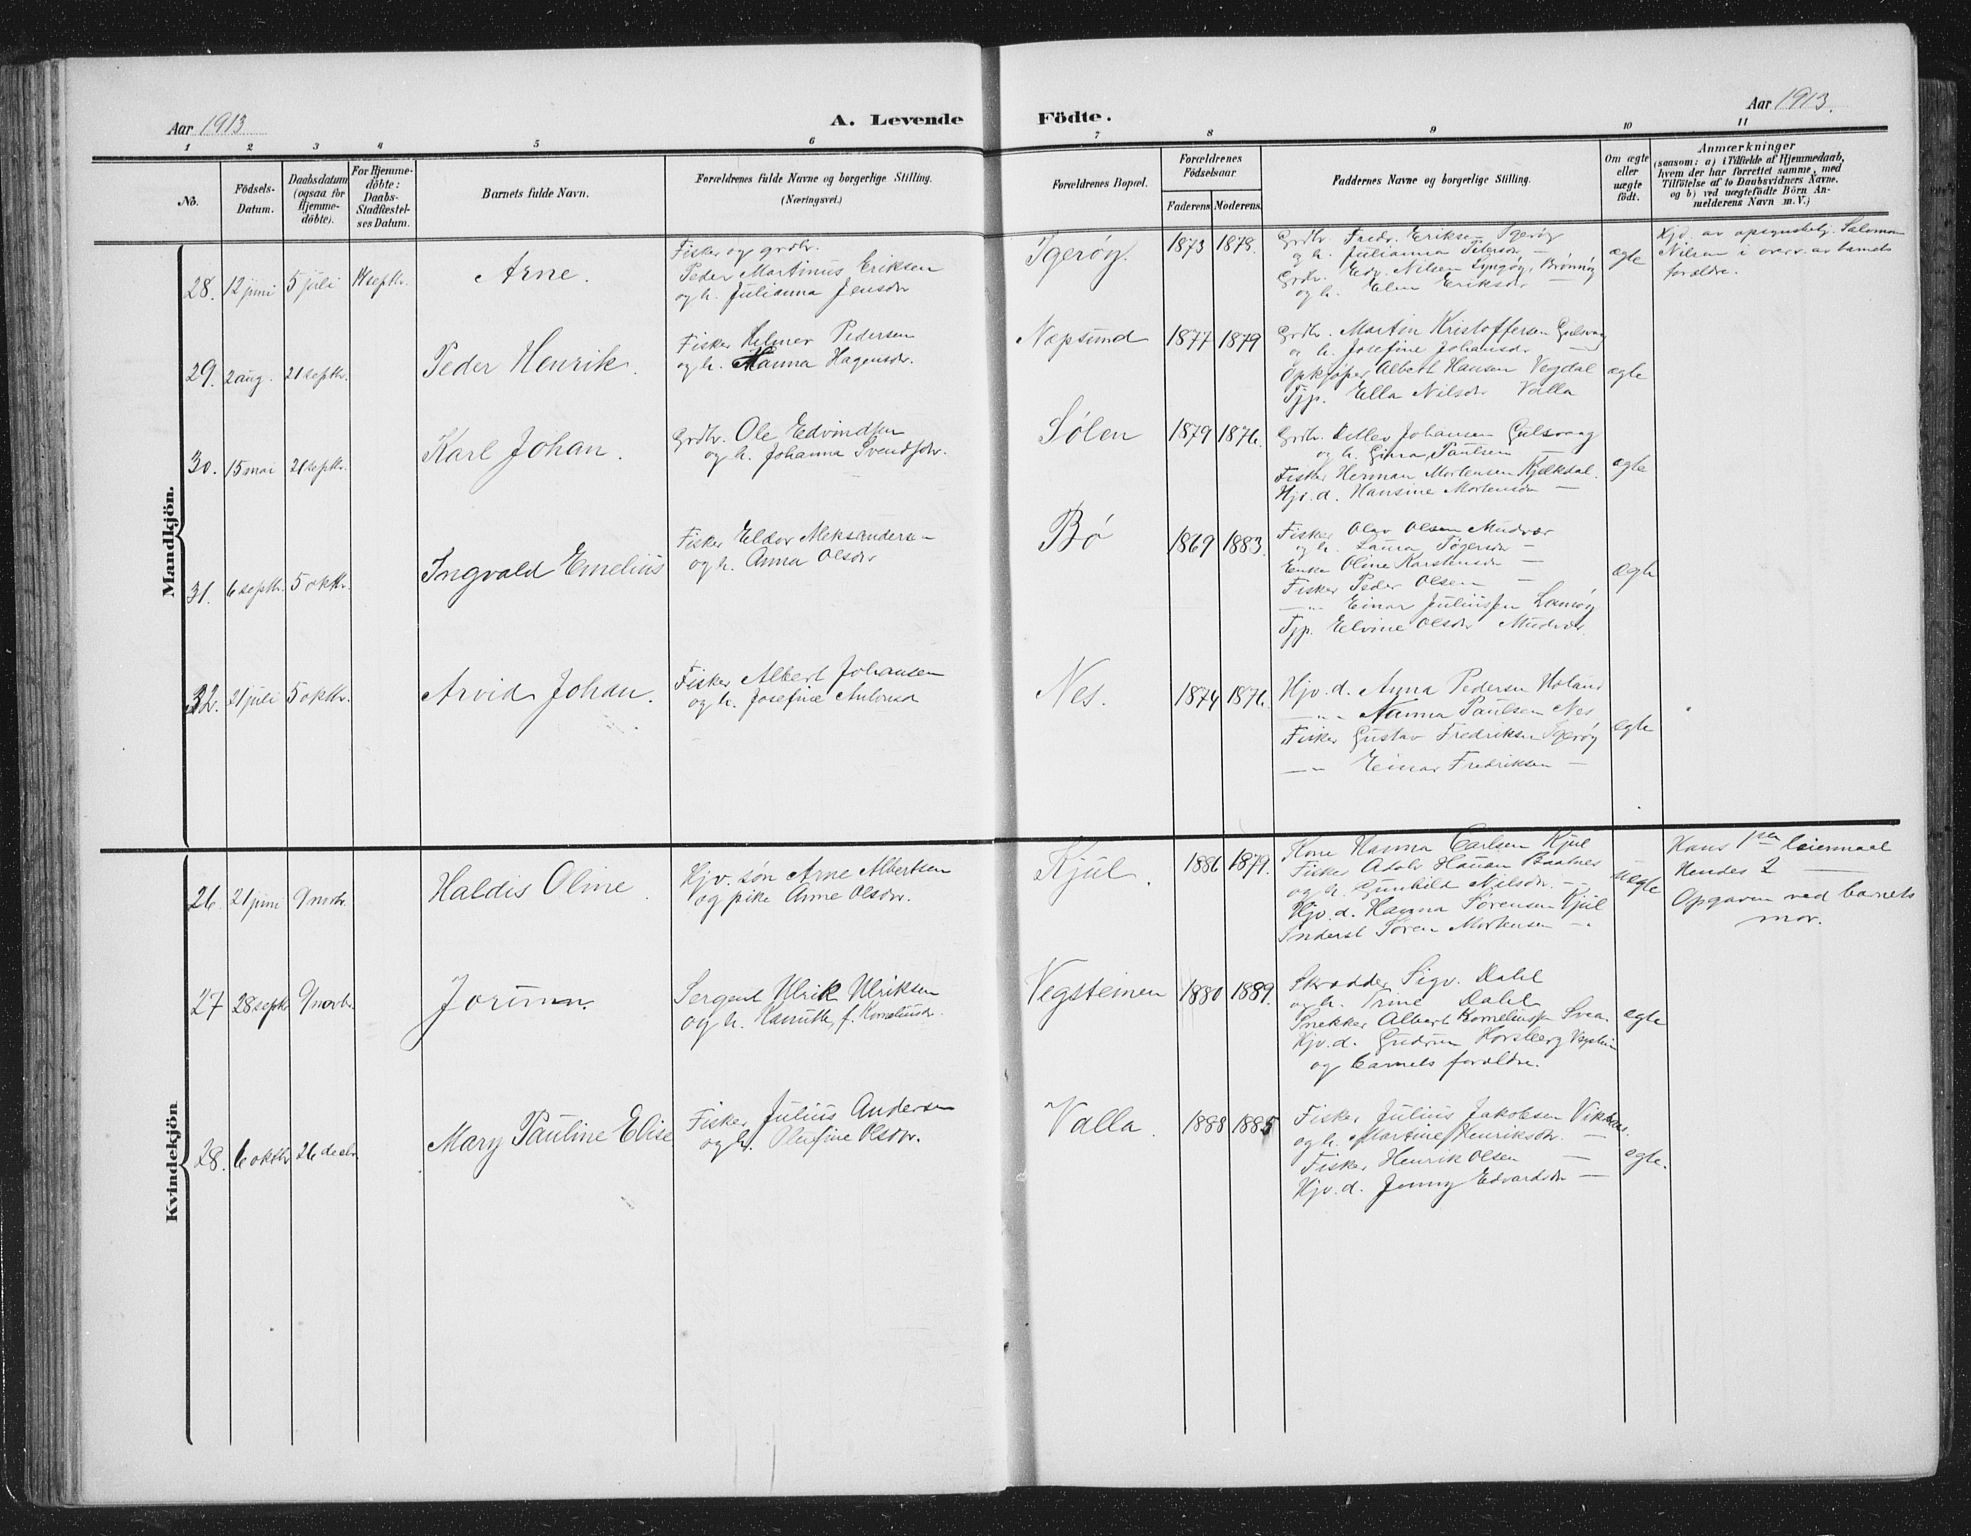 Aar 1913
A. Levende
Födte.
Aar 1913.
1 2 3 4 5 6 7 8 9 10 11
No.
Födsels-
Datum.
Daabsdatum
(ogsaa for
Hjemme-
döbte).
For Hjemme-
döbte:
Daabs-
Stadfæstel-
ses Datum.
Barnets fulde Navn.
Forældrenes fulde Navne og borgerlige Stilling.
(Næringsvei.)
Forældrenes Bopæl.
Forældrenes
Födselsaar.
Faderens Moderens
Faddernes Navne og borgerlige Stilling.
Om ægte
eller
uægte
födt.
Anmærkninger
(saasom: a) i Tilfælde af Hjemmedaab,
hvem der har forrettet samme, med
Tilföielse af to Daabsvidners Navne.
og b) ved uægtefödte Börn An-
melderens Navn m.V.)
Mandkjön.
28. 12 juni 5 juli 14 septbr. Arne.
Fisker og grdbr.
Peder Martinus Eriksen
og h. Julianna Jensdr
Igerøy. 1873 1878.
Grdbr. Fredr. Eriksen Igerøy
og h. Julianna Petersdr —
Grdbr. Edv. Nilsen Lyngøy, Brønnøy
og h. Elen Eriksdr
ægte
Hjd. av Salomon
Nilsen i overv. av barnets
forældre.
29. 2 aug. 21 septbr. Peder Henrik.
Fisker Helmer Pedersen
og h. Hanna Hagensdr.
Næpsund 1877 1879
Grdbr. Martin Kristoffersen Gulsvaag
og h. Josefine Johansdr —
Opkjøper Albert Hansen Vegdal
Tjp. Ella Nilsdr Valla
ægte
30. 15 mai 21 septbr. Karl Johan.
Grdbr. Ole Edvindsen
og h. Johanna Svendsdr.
Sølen 1879 1876.
Grdbr. Detlev Johansen Gulsvaag
og h. Gina Paulsen —
Fisker Herman Mortensen Kjelkdal.
Hjv. d. Hansine Mortensdr —
ægte
31. 6 septbr. 5 oktbr. Ingvald Emelius
Fisker Eldor Aleksandersen
og h. Anna Olsdr
Bø 1869 1883.
Fisker Olav Olsen Mudvær
og h. Laura Tøgersdr —
Enke Oline Karstensdr —
Fisker Peder Olsen —
—"— Einar Juliussen Lamøy
Tjp. Elvine Olsdr Mudvær.
ægte
32. 21 juli 5 oktbr. Arvid Johan.
Fisker Albert Johansen
og h. Josefine Antonsd
Nes. 1874 1876.
Hjv. d. Anna Pedersen Holand
—"— Nanna Paulsen Nes
Fisker Gustav Fredriksen Igerøy
—"— Einar Fredriksen —
ægte
Kvindekjön
26. 21 juni 9 novbr. Haldis Oline.
Hjv. søn Arne Albertsen
og pike Anne Olsdr.
Kjul. 1886 1879.
Kone Hanna Carlsen Kjul
Fisker Adolv Hauan
og h. Gunhild Nilsdr. —
Hjv. d. Hanna Sørensen Kjul
Inderst Søren Mortensen —.
uægte
Hans 1ste leiermaal
Hendes 2 —
Opgaven ved barnets
mor.
27 28 septbr 9 novbr. Jorunn.
Sergent Ulrik Ulriksen
og h. f. Korneliusdr.
Vegsteinen 1880 1889.
Skrædder Sigv. Dahl
og h. Trine Dahl
Snekker Albert Korneliuss. Svea.
Hjv. d. Gudrun Horsberg Vegstein
og barnets forældre.
ægte
28. 6 oktbr 26 decbr. Mary Pauline Elise
Fisker Julius Andersen
og h. Olufine Olsdr.
Valla. 1888 1885
Fisker Julius Jakobsen
og h. Martine Henriksdr. —
Fisker Henrik Olsen —
Hjv. d. Jenny Edvardsdr —
ægte.